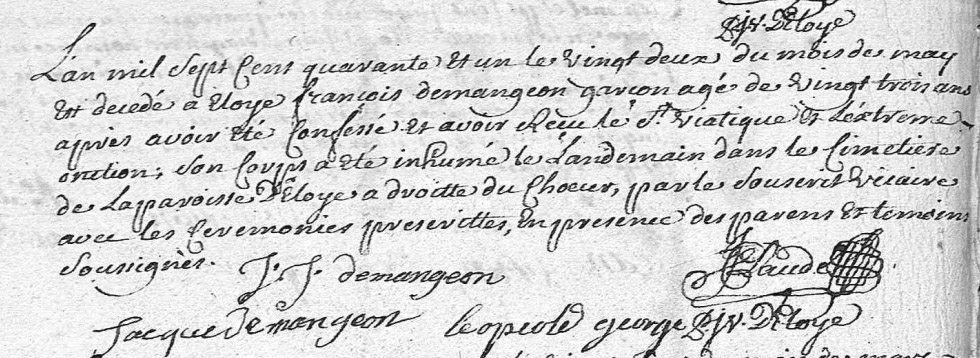 pjv. Deloye
L'an mil sept cent quarante et un le vingt deux du mois de may
est decedé a Eloye françois demangeon garcon agé de vingt trois ans
apres avoir été confessé et avoir reçu le St Viatique et L'extreme
onction; son corps a été inhumé le Landemain dans le Cimetiere
de Lapparoisse D'Eloye a droitte du Choeur, par le souscrit vicaire
avec les Ceremonies prescrittes, En presence des parens et temoins
soussignés.
J. J. demangeon Claude
Jacque demangeon Leopold george pjv. Deloye